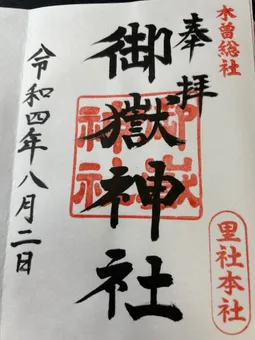 木曽総社
奉拝
御嶽神社
御嶽神社
里社本社
令和四年八月二日